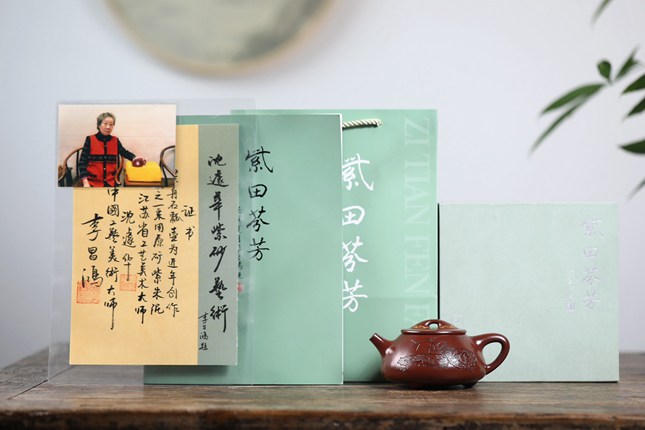 沈遽华紫砂艺術
李昌鸿题
证书
丹石瓢壶为近年创作
之一采用原矿紫朱泥
江苏省工艺美术大师
沈遽华
中国工艺美术大师
李昌鸿
紫田芬芳
紫田芬芳
ZI TIAN FEN
紫田芬芳